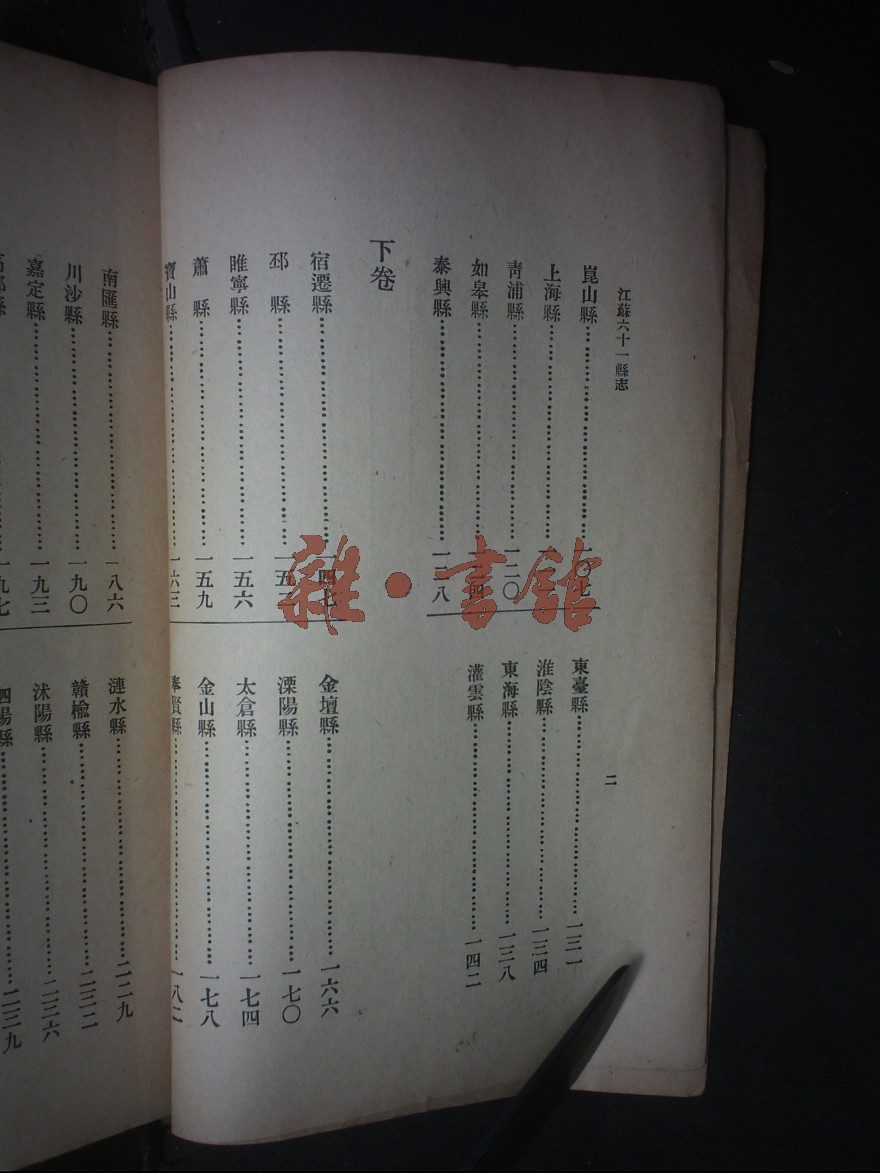 江蘇六十一縣志
二
崑山縣
上海縣
青浦縣 一二〇
如皋縣
泰興縣 一二八
東臺縣 一三一
淮陰縣 一三四
東海縣 一三八
灌雲縣 一四二
下卷
宿遷縣 一四七
邳縣
睢寧縣 一五六
蕭縣 一五九
寶山縣 一六三
金壇縣 一六六
溧陽縣 一七〇
太倉縣 一七四
金山縣 一七八
奉賢縣 一八二
南匯縣 一八六
川沙縣 一九〇
嘉定縣 一九三
漣水縣 二二九
贛榆縣 二三二
沭陽縣 二三六
泗陽縣 二三九
雜·書館